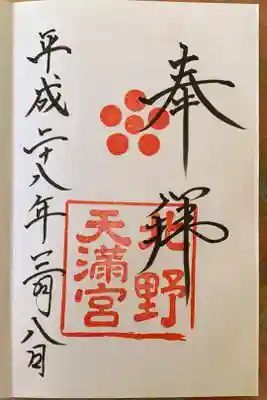 奉拝
北野
天満宮
平成二十八年三月八日